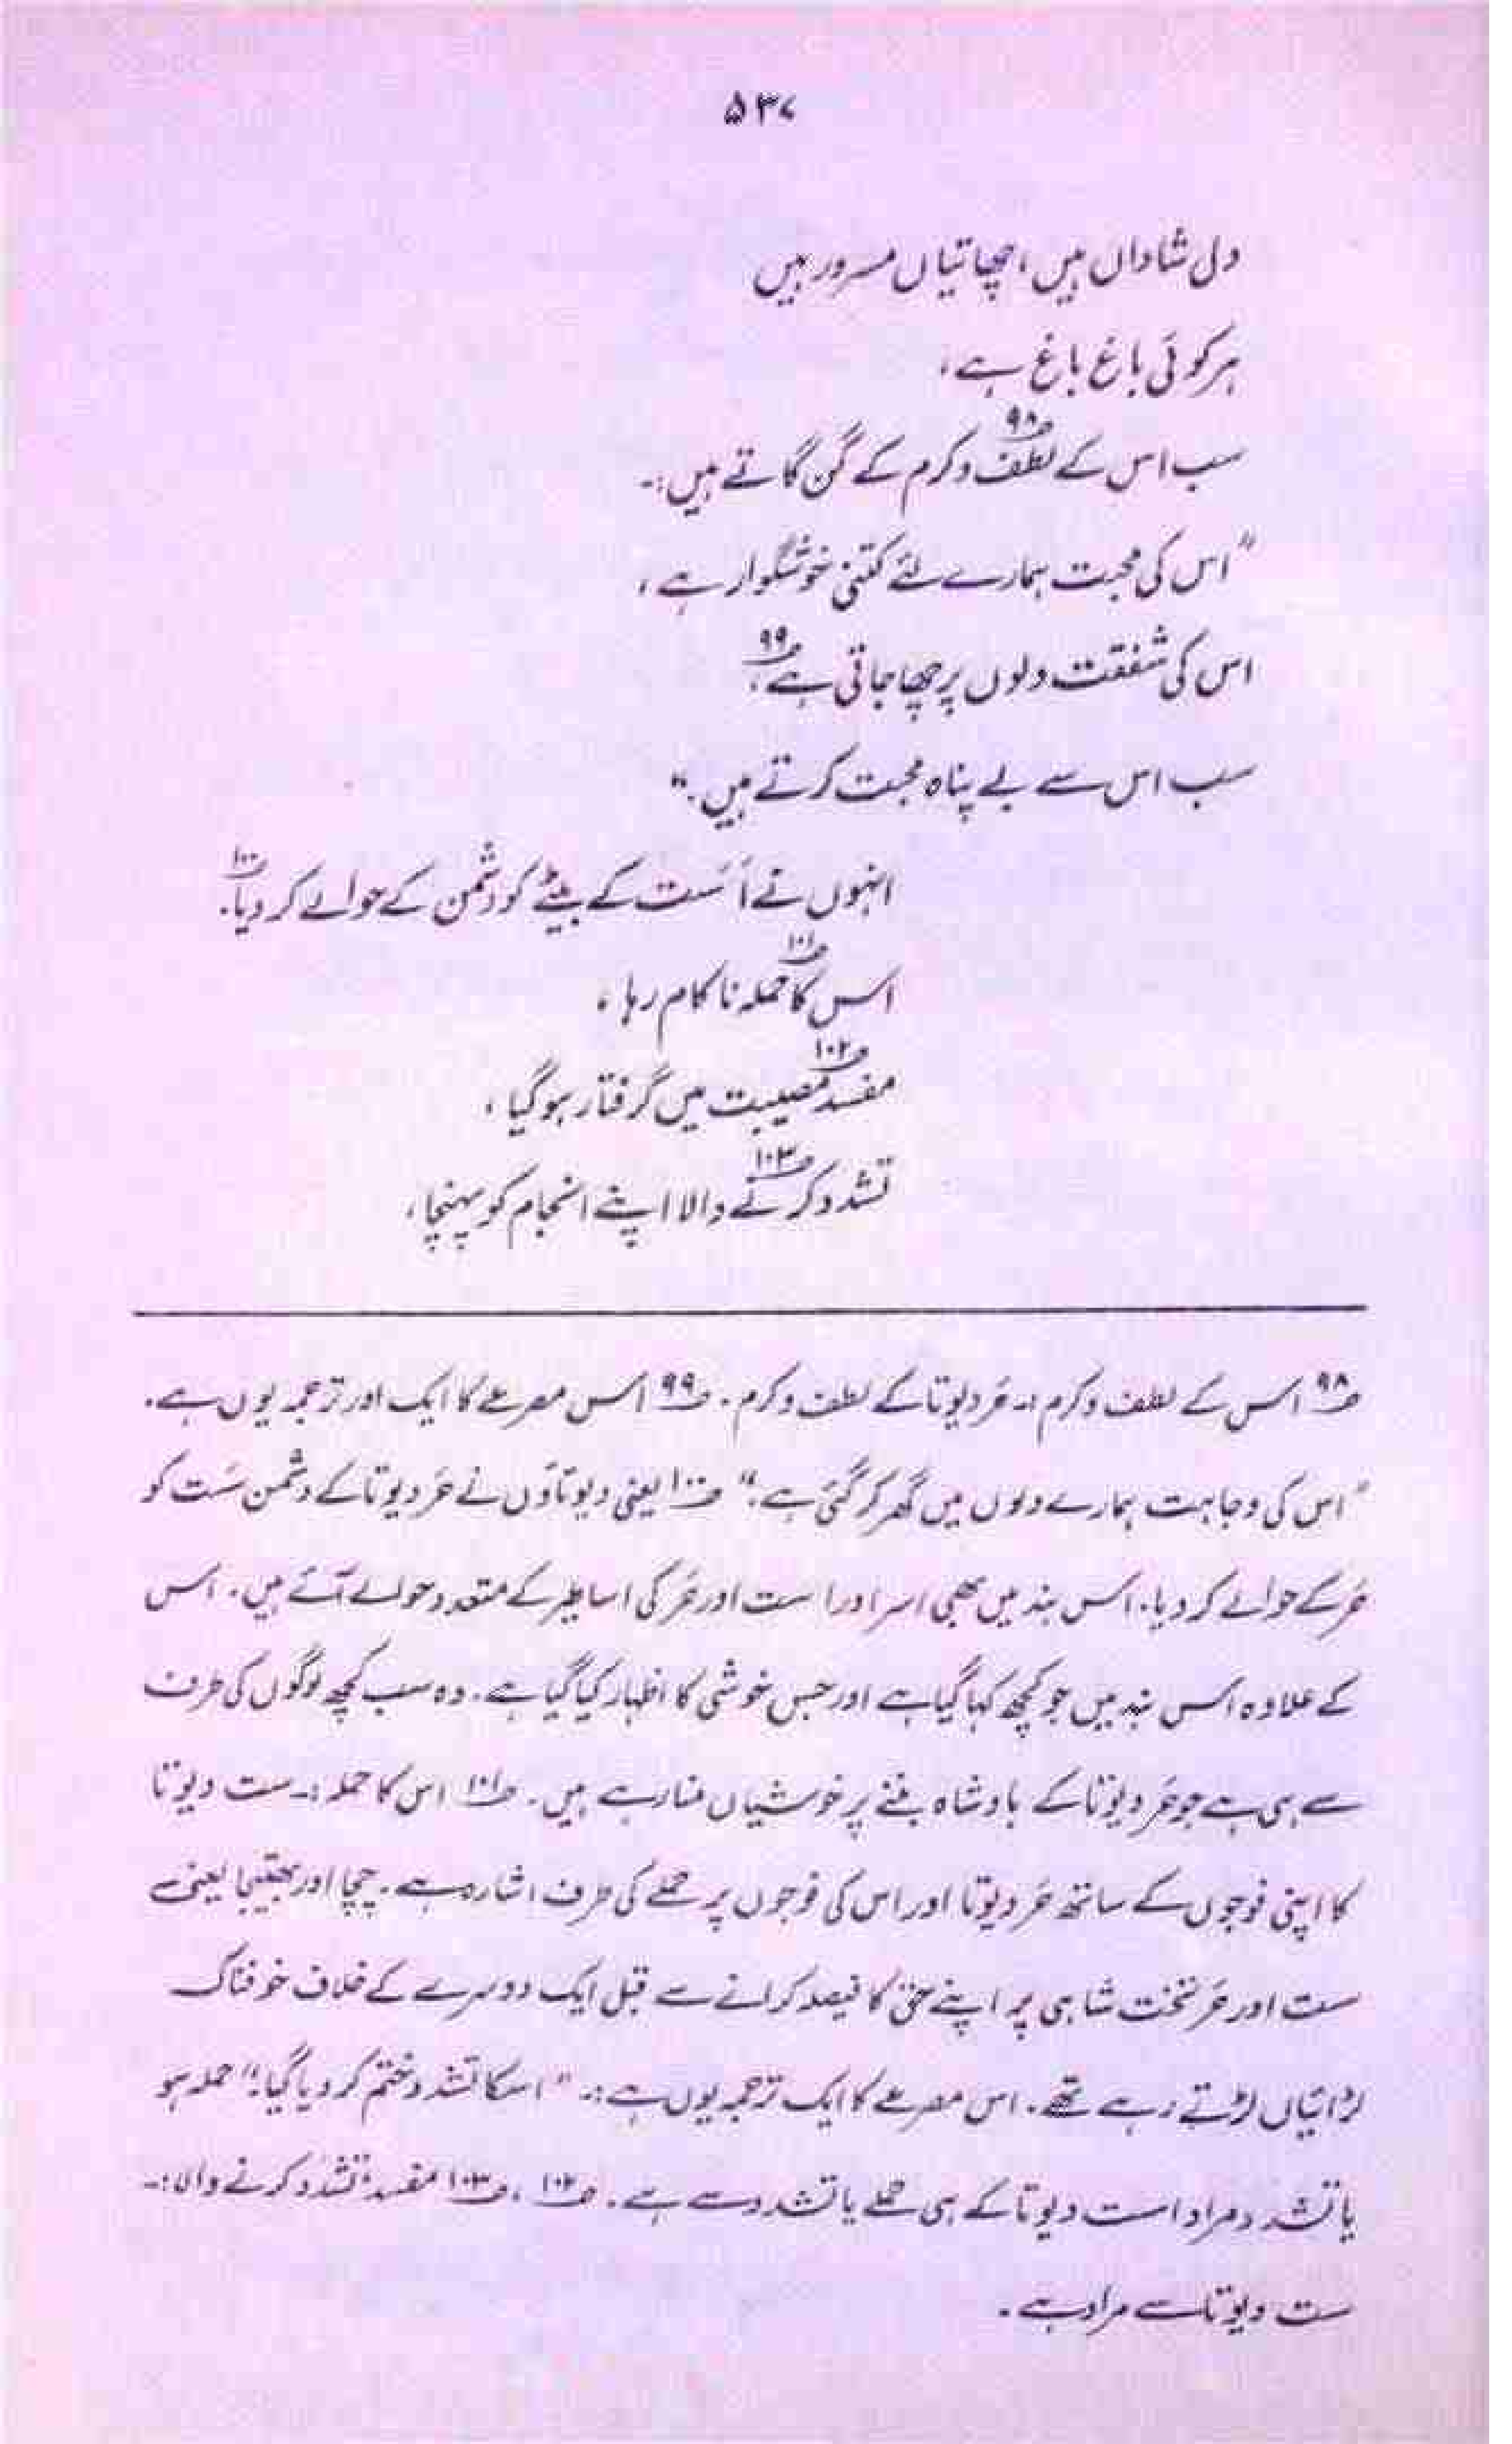 ۵۳۷
دل شاداں ہیں، چھاتیاں مسرور ہیں
ہر کوئی باغ باغ ہے،
سب اس کے لطف۹۸ و کرم کے گن گاتے ہیں:۔
"اس کی محبت ہمارے لئے کتنی خوشگوار ہے،
اس کی شفقت دلوں پر چھا جاتی ہے،۹۹
سب اس سے بے پناہ محبت کرتے ہیں۔"
انہوں نے اَسَت کے بیٹے کو دشمن کے حوالے کر دیا۔۱۰۰
اس کا حملہ۱۰۱ ناکام رہا،
مفسد۱۰۲ مصیبت میں گرفتار ہو گیا،
تشدد کرنے۱۰۳ والا اپنے انجام کو پہنچا،
۹۸ اس کے لطف و کرم:۔ حَر دیوتا کے لطف و کرم۔ ۹۹ اس مصرعے کا ایک اور ترجمہ یوں ہے۔
"اس کی وجاہت ہمارے دلوں میں گھر کر گئی ہے،" ۱۰۰ یعنی دیوتاؤں نے حَر دیوتا کے دشمن سَت کو
حَر کے حوالے کر دیا۔ اس بند میں بھی اسر اور است اور حَر کی اساطیر کے متعدد حوالے آئے ہیں۔ اس
کے علاوہ اس بند میں جو کچھ کہا گیا ہے اور جس خوشی کا اظہار کیا گیا ہے۔ وہ سب کچھ لوگوں کی طرف
سے ہی ہے جو حَر دیوتا کے بادشاہ بننے پر خوشیاں منا رہے ہیں۔ ۱۰۱ اس کا حملہ:۔ ست دیوتا
کا اپنی فوجوں کے ساتھ حَر دیوتا اور اس کی فوجوں پر حملے کی طرف اشارہ ہے۔ چچا اور بھتیجا یعنی
ست اور حَر تخت شاہی پر اپنے حق کا فیصلہ کرانے سے قبل ایک دوسرے کے خلاف خوفناک
لڑائیاں لڑتے رہے تھے۔ اس مصرعے کا ایک ترجمہ یوں ہے:۔ "اسکا تشدد ختم کر دیا گیا،" حملہ ہو
یا تشدد مراد است دیوتا کے ہی حملے یا تشدد سے ہے۔ ۱۰۲، ۱۰۳ مفسد، تشدد کرنے والا:۔
ست دیوتا سے مراد ہے۔